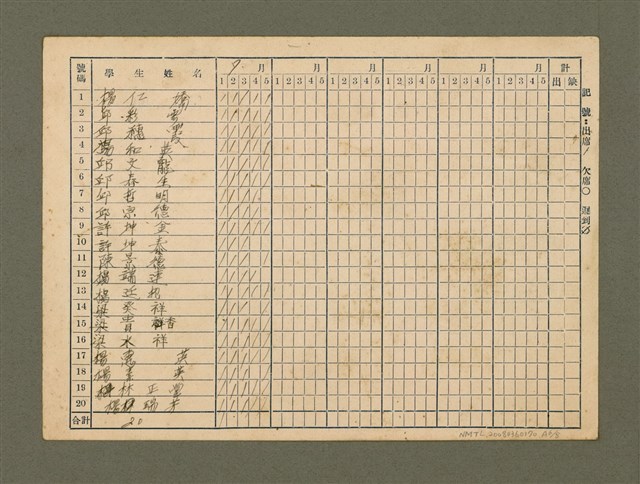 號碼 學生姓名 9月 月 月 月 月 月 計
1 2 3 4 5 1 2 3 4 5 1 2 3 4 5 1 2 3 4 5 1 2 3 4 5 1 2 3 4 5 出 缺
1 楊仁
2 邱彩雲
3 邱穗霞
4 楊和英
5 邱文龍
6 邱春生
7 邱哲明
8 邱宗德
9 許坤金
10 許坤泰
11 陳景德
12 楊瑞達
13 楊
14 梁癸祥
15 梁貴香
16 梁水祥
17 楊惠英
18 楊英
19 林正豐
20 楊瑞
合計 20
記號：出席/ 欠席○ 遲到
NMTL